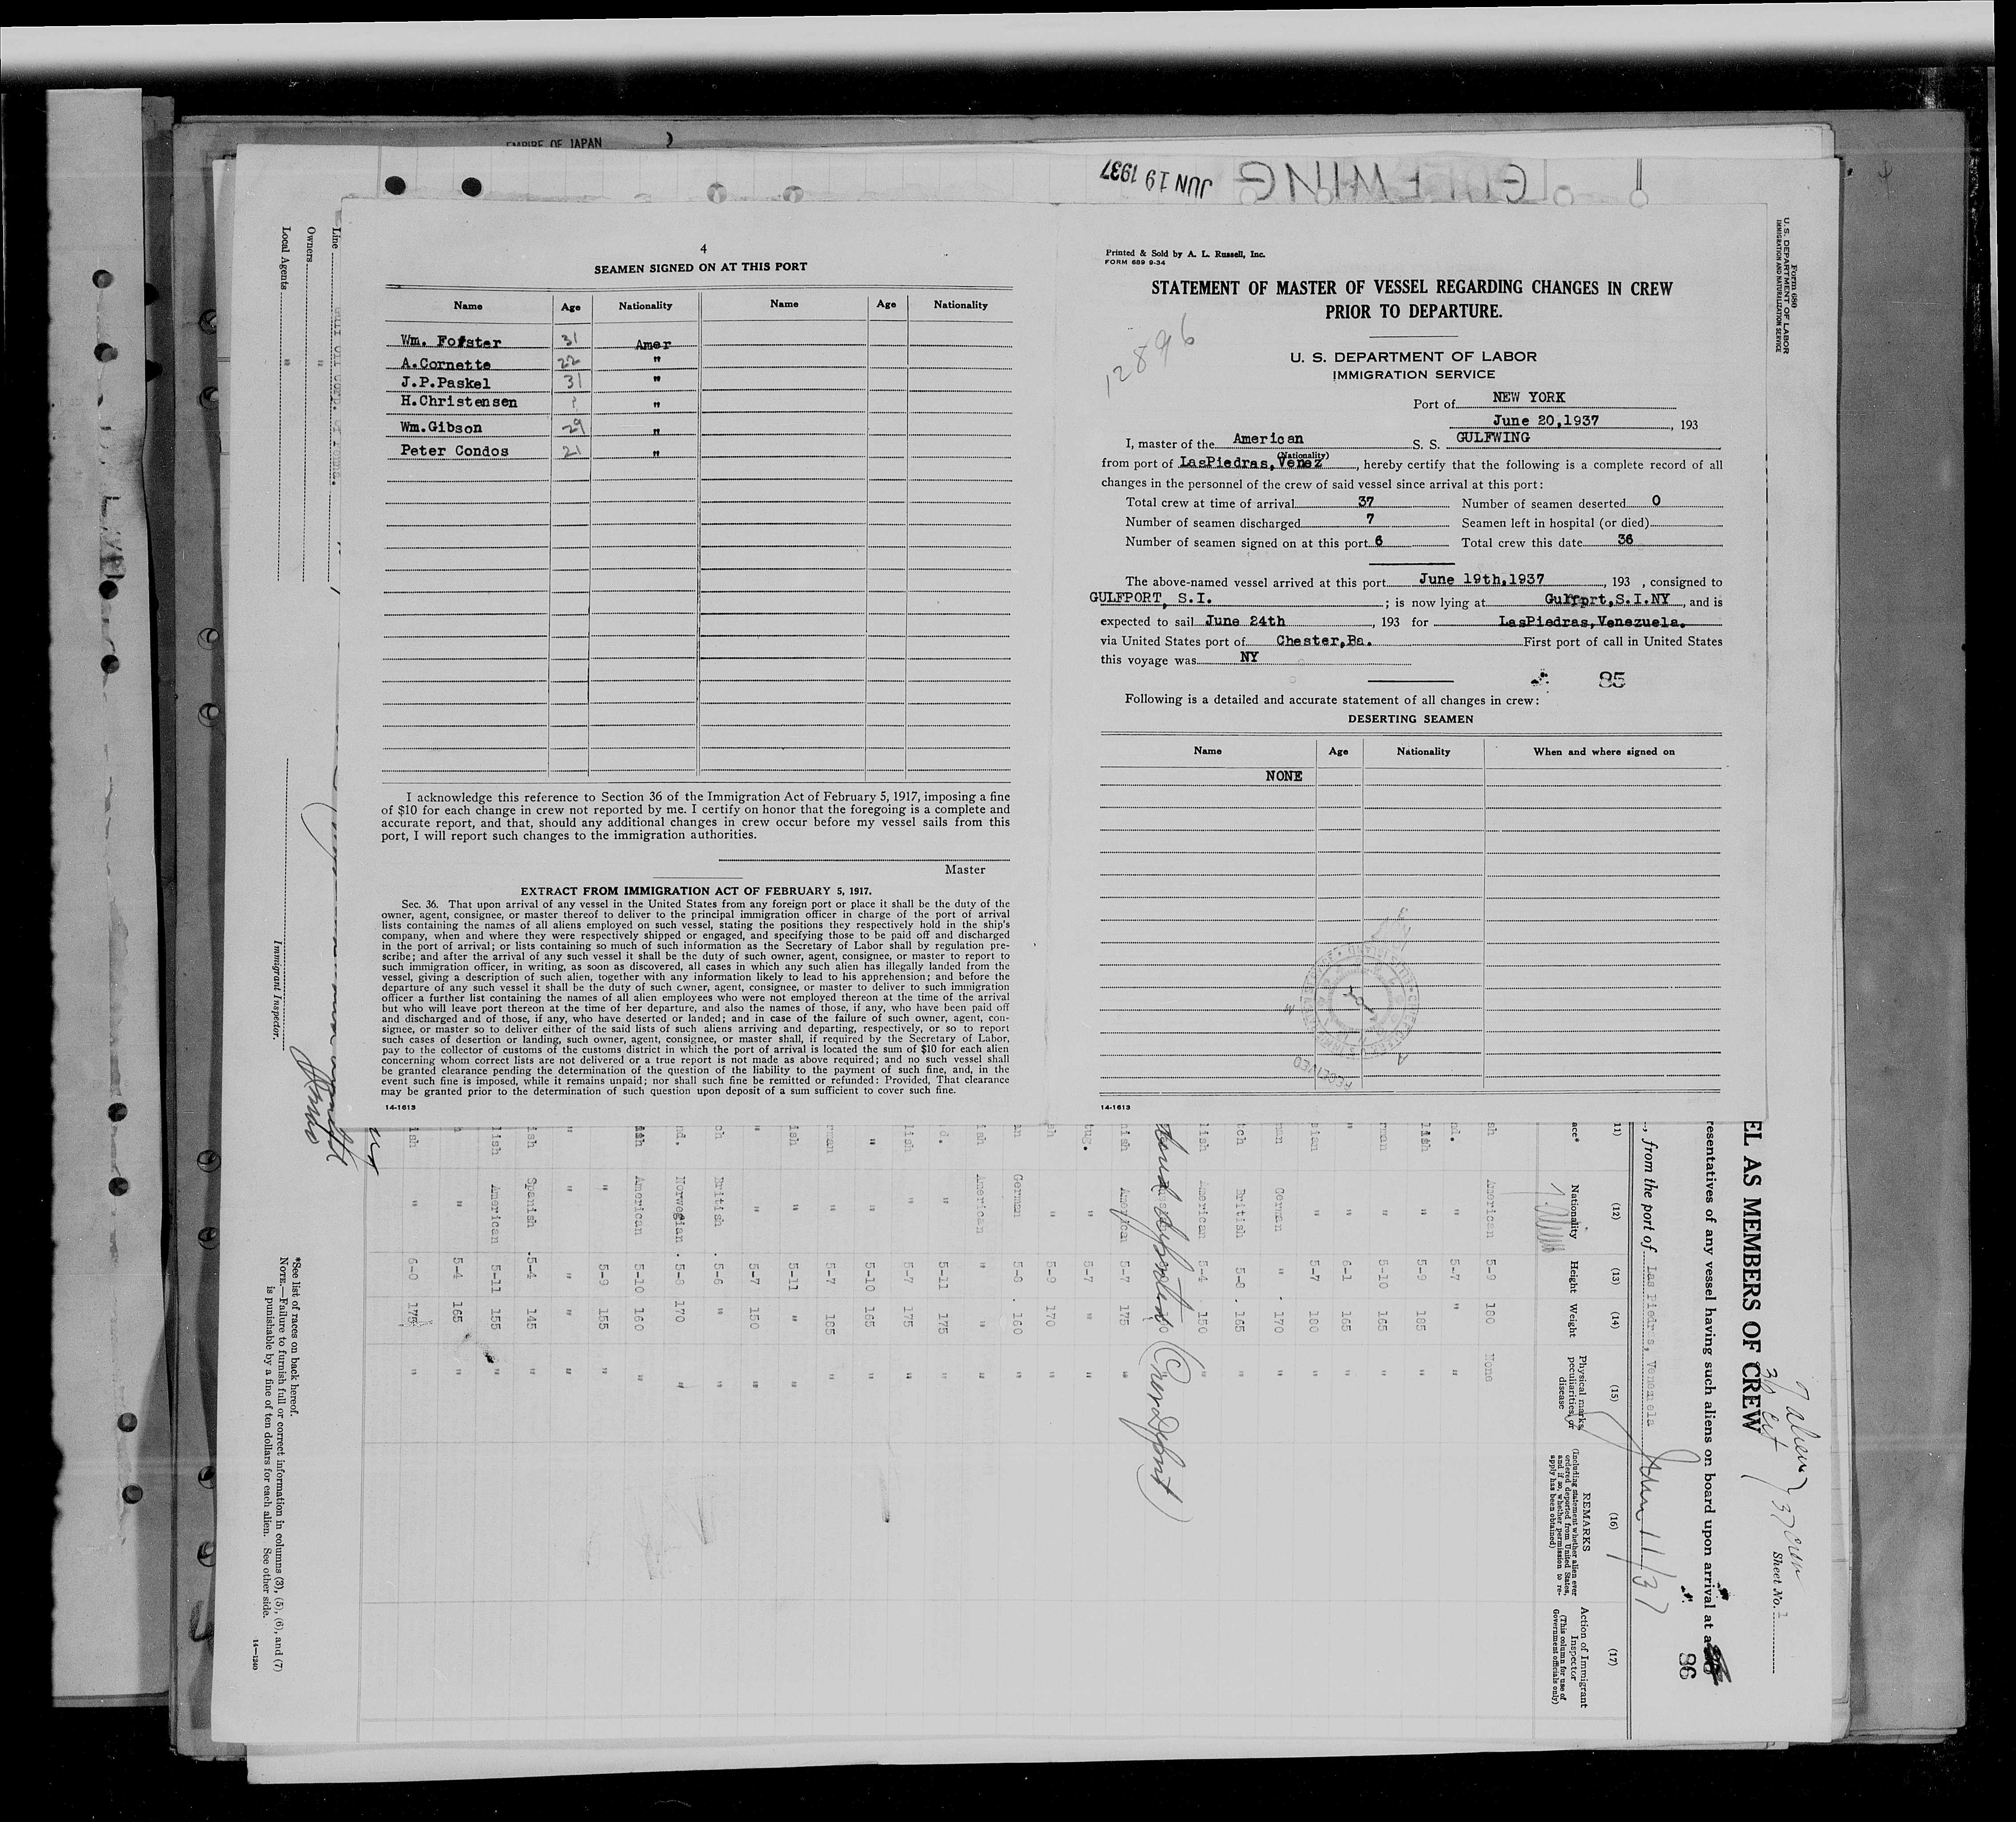 EMPIRE OF JAPAN
JUN 19 1937
GULFWING
4
SEAMEN SIGNED ON AT THIS PORT
Name Age Nationality Name Age Nationality
Wm. Forster 31 Amer
A.Cornette 22 "
J.P.Paskel 31 "
H.Christensen ? "
Wm.Gibson 29 "
Peter Condos 21 "
I acknowledge this reference to Section 36 of the Immigration Act of February 5, 1917, imposing a fine
of $10 for each change in crew not reported by me. I certify on honor that the foregoing is a complete and
accurate report, and that, should any additional changes in crew occur before my vessel sails from this
port, I will report such changes to the immigration authorities.
Master
EXTRACT FROM IMMIGRATION ACT OF FEBRUARY 5, 1917.
Sec. 36. That upon arrival of any vessel in the United States from any foreign port or place it shall be the duty of the
owner, agent, consignee, or master thereof to deliver to the principal immigration officer in charge of the port of arrival
lists containing the names of all aliens employed on such vessel, stating the positions they respectively hold in the ship's
company, when and where they were respectively shipped or engaged, and specifying those to be paid off and discharged
in the port of arrival; or lists containing so much of such information as the Secretary of Labor shall by regulation pre-
scribe; and after the arrival of any such vessel it shall be the duty of such owner, agent, consignee, or master to report to
such immigration officer, in writing, as soon as discovered, all cases in which any such alien has illegally landed from the
vessel, giving a description of such alien, together with any information likely to lead to his apprehension; and before the
departure of any such vessel it shall be the duty of such owner, agent, consignee, or master to deliver to such immigration
officer a further list containing the names of all alien employees who were not employed thereon at the time of the arrival
but who will leave port thereon at the time of her departure, and also the names of those, if any, who have been paid off
and discharged and of those, if any, who have deserted or landed; and in case of the failure of such owner, agent, con-
signee, or master so to deliver either of the said lists of such aliens arriving and departing, respectively, or so to report
such cases of desertion or landing, such owner, agent, consignee, or master shall, if required by the Secretary of Labor,
pay to the collector of customs of the customs district in which the port of arrival is located the sum of $10 for each alien
concerning whom correct lists are not delivered or a true report is not made as above required; and no such vessel shall
be granted clearance pending the determination of the question of the liability to the payment of such fine, and, in the
event such fine is imposed, while it remains unpaid; nor shall such fine be remitted or refunded: Provided, That clearance
may be granted prior to the determination of such question upon deposit of a sum sufficient to cover such fine.
14-1613
Printed & Sold by A. L. Russell, Inc.
FORM 689 9-34
STATEMENT OF MASTER OF VESSEL REGARDING CHANGES IN CREW
PRIOR TO DEPARTURE.
12896
U. S. DEPARTMENT OF LABOR
IMMIGRATION SERVICE
Port of NEW YORK
June 20,1937, 193
I, master of the American S. S. GULFWING
(Nationality)
from port of LasPiedras,Venez, hereby certify that the following is a complete record of all
changes in the personnel of the crew of said vessel since arrival at this port:
Total crew at time of arrival 37 Number of seamen deserted 0
Number of seamen discharged 7 Seamen left in hospital (or died)
Number of seamen signed on at this port 6 Total crew this date 36
The above-named vessel arrived at this port June 19th,1937, 193 , consigned to
GULFPORT, S.I. ; is now lying at Gulfprt,S.I.NY, and is
expected to sail June 24th, 193 for LasPiedras,Venezuela.
via United States port of Chester,Pa. First port of call in United States
this voyage was NY
85
Following is a detailed and accurate statement of all changes in crew:
DESERTING SEAMEN
Name Age Nationality When and where signed on
NONE
RECEIVED
14-1613
Form 680
U.S. DEPARTMENT OF LABOR
IMMIGRATION AND NATURALIZATION SERVICE
Sheet No. 1
7 aliens
30 cit
37 crew
EL AS MEMBERS OF CREW
resentatives of any vessel having such aliens on board upon arrival at a
86
, from the port of Las Piedras, Venezuela June 11/37
(11) (12) (13) (14) (15) (16) (17)
ace* Nationality Height Weight Physical marks, peculiarities, or disease
REMARKS
(Including statement whether alien ever ordered deported from United States, and if so, whether permission to re-apply has been obtained)
Action of Immigrant Inspector
(This column for use of Government officials only)
sh American 5-9 180 None
d. " 5-7 " "
lish " 5-9 185 "
rman " 5-10 165 "
" " 6-1 165 "
sian " 5-7 180 "
man German " 170 "
tch British 5-8 165 "
lish American 5-4 150 "
nish American 5-7 175 "
tug. " 5-7 " "
sh " 5-9 170 "
an German 5-8 160 "
ish American " " "
d. " 5-11 175 "
lish " 5-7 175 "
" " 5-10 165 "
rman " 5-7 185 "
ish " 5-11 " "
" " 5-7 150 "
ch British 5-6 " "
nd. Norwegian 5-8 170 "
ish American 5-10 160 "
" " 5-9 155 "
" " " " "
ish Spanish 5-4 145 "
lish American 5-11 155 "
h " 5-4 165 "
ish " 6-0 175 "
Line
Owners "
Local Agents "
Immigrant Inspector.
*See list of races on back hereof.
NOTE.—Failure to furnish full or correct information in columns (3), (5), (6), and (7)
is punishable by a fine of ten dollars for each alien. See other side.
14—1240